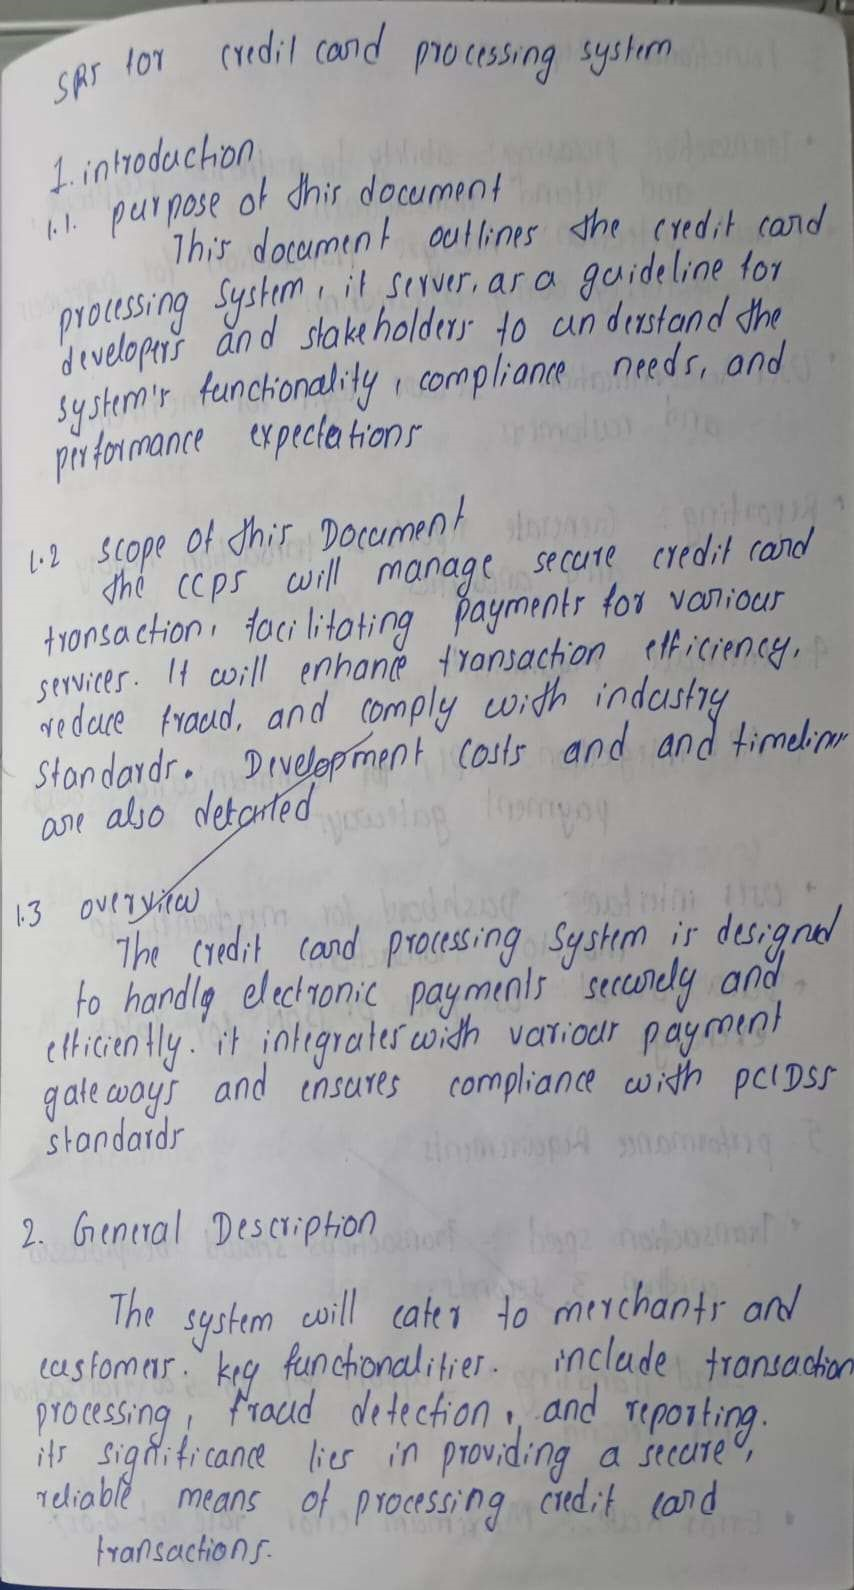 SRS for credit card processing system
1. introduction
1.1. purpose of this document
This document outlines the credit card
processing system, it server, as a guideline for
developers and stakeholders to understand the
system's functionality, compliance needs, and
performance expectations
1.2 scope of this Document
the CCPS will manage secure credit card
transaction, facilitating payments for various
services. It will enhance transaction efficiency,
reduce fraud, and comply with industry
standards. Development costs and and timelines
are also detailed
1.3 overview
The credit card processing system is designed
to handly electronic payments securely and
efficiently. it integrates with various payment
gateways and ensures compliance with PCIDSS
standards
2. General Description
The system will cater to merchants and
customers. key functionalities. include transaction
processing, fraud detection, and reporting.
its significance lies in providing a secure,
reliable means of processing credit card
transactions.